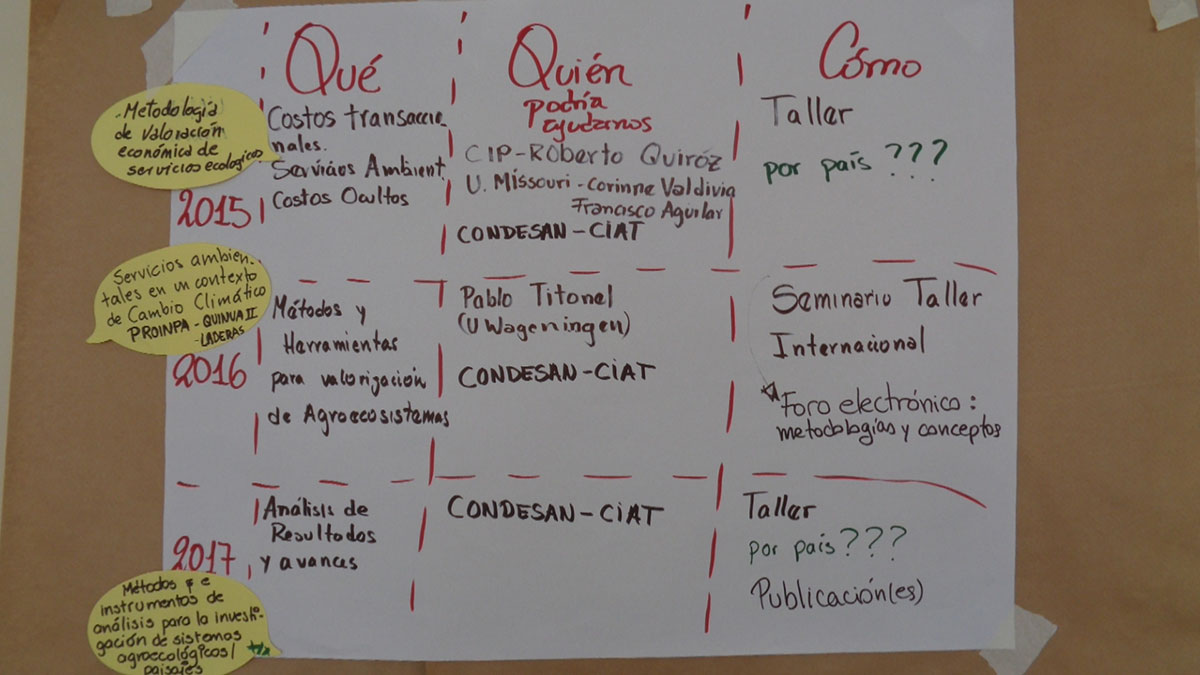 Qué
Quién
podría
ayudarnos
Cómo
- Metodología
de valoración
económica de
servicios ecologicos
2015
Costos transaccio
nales.
Servicios Ambient
Costos Ocultos
CIP-Roberto Quiróz
U. Missouri - Corinne Valdivia
Francisco Aguilar
CONDESAN-CIAT
Taller
por país ???
Servicios ambien-
tales en un contexto
de Cambio Climático
PROINPA - QUINUA II
- LADERAS
2016
Métodos y
Herramientas
para valorización
de Agroecosistemas
Pablo Titonel
(U Wageningen)
CONDESAN-CIAT
Seminario Taller
Internacional
Foro electrónico:
metodologías y conceptos
2017
Análisis de
Resultados
y avances
CONDESAN-CIAT
Taller
por país???
Publicación(es)
Métodos e
instrumentos de
análisis para la investi-
gación de sistemas
agroecológicos/
paisajes